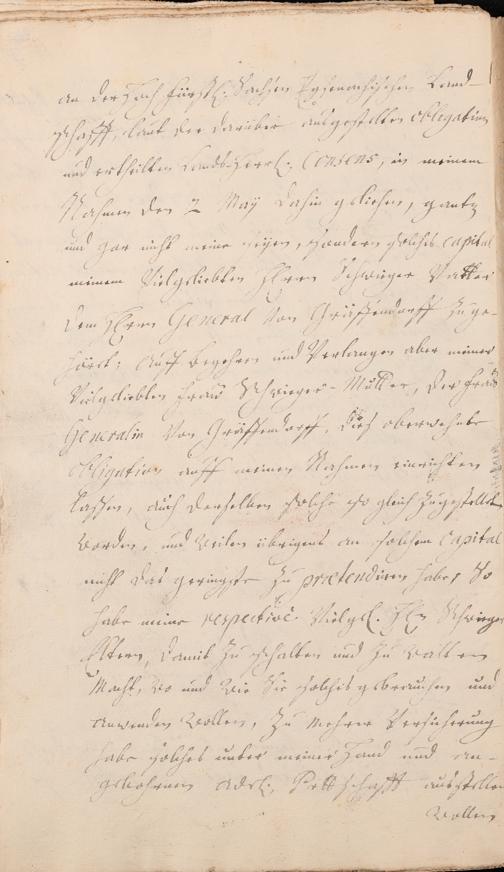 an der Hoch Fürstl. Sachsen Eysenachischen Land-
schafft, laut der darüber ausgestellten obligation
und ertheilten Lands-Herrl. Consens, in meinem
Nahmen den 2 May dahin geliehen, gantz
und gar nicht meine eigen, sondern solches capital
meinem Vielgeliebten Herrn Schwieger Vatter
dem Herrn General von Gräffendorff zuge-
höret; Auff begehren und Verlangen aber meiner
Vielgeliebten Frau Schwieger-Mutter, der Frau
Generalin von Gräffendorff, dieß oberwehnte
obligation auff meinen Nahmen einrichten
lassen, auch derselben solche so gleich zugestellet
worden, und weilen übrigens an solchem capital
nicht das geringste zu prætendiren habe; So
habe meine respectivè Vielgel. Hln Schwieger
Eltern, damit zu schalten und zu walten
Macht, wo und wie Sie solches gebrauchen und
anwenden wollen, Zu mehrer Versicherung
habe solches unter meiner Hand und an-
gebohrnen Adel. Pettschafft ausstellen
wollen